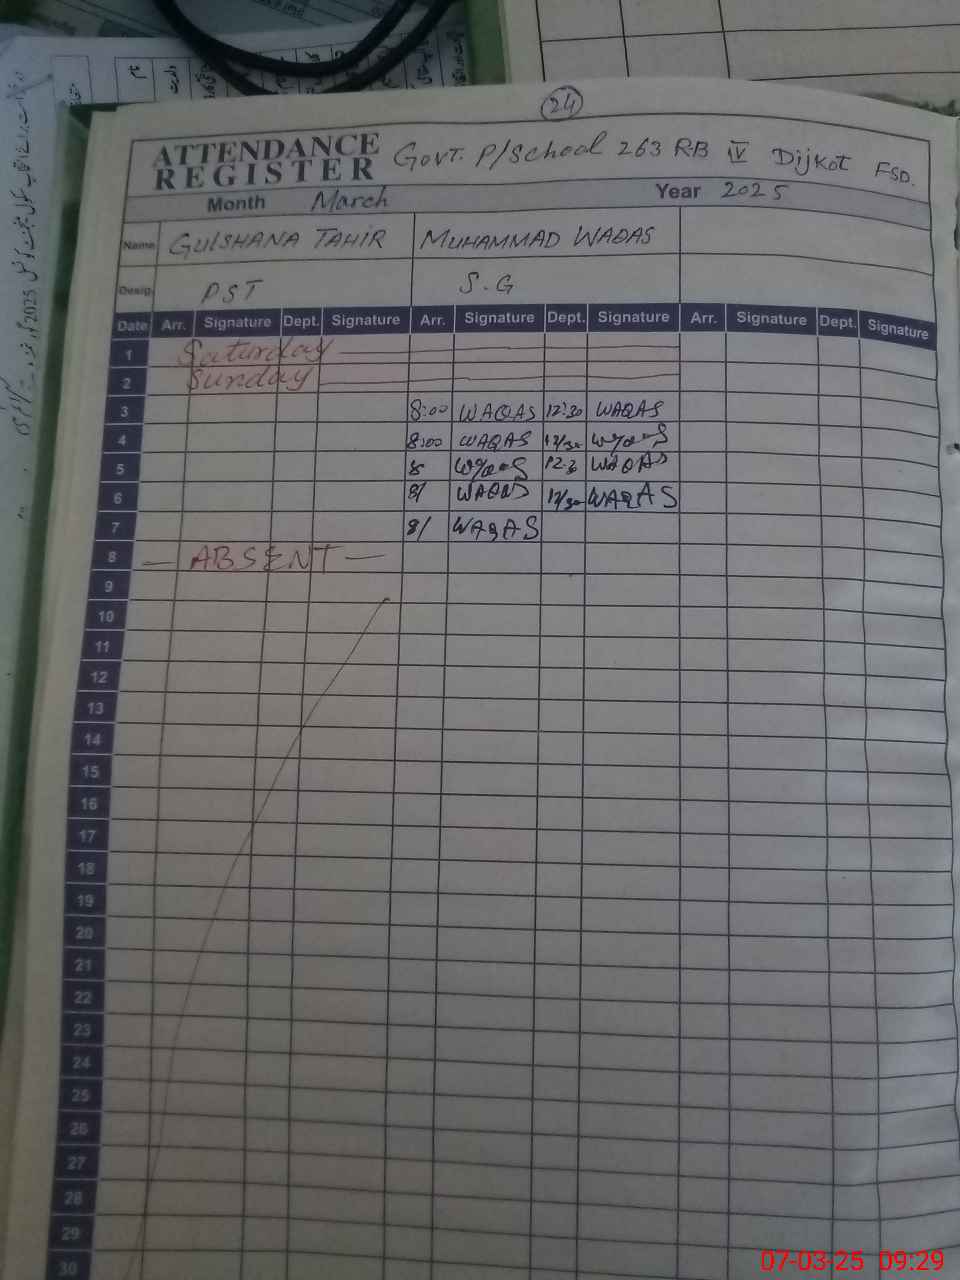 24
ATTENDANCE
REGISTER
GOVT. P/School 263 RB IV Dijkot FSD.
Month March Year 2025
Name GULSHANA TAHIR MUHAMMAD WAQAS
Desig. PST S.G
Date Arr. Signature Dept. Signature Arr. Signature Dept. Signature Arr. Signature Dept. Signature
1 Saturday
2 Sunday
3 8:00 WAQAS 12:30 WAQAS
4 8:00 WAQAS 12/30 WAQAS
5 8 WAQAS 12:3 WAQAS
6 8/ WAQAS 12/30 WAQAS
7 8/ WAQAS
8 — ABSENT —
9
10
11
12
13
14
15
16
17
18
19
20
21
22
23
24
25
26
27
28
29
30
07-03-25 09:29